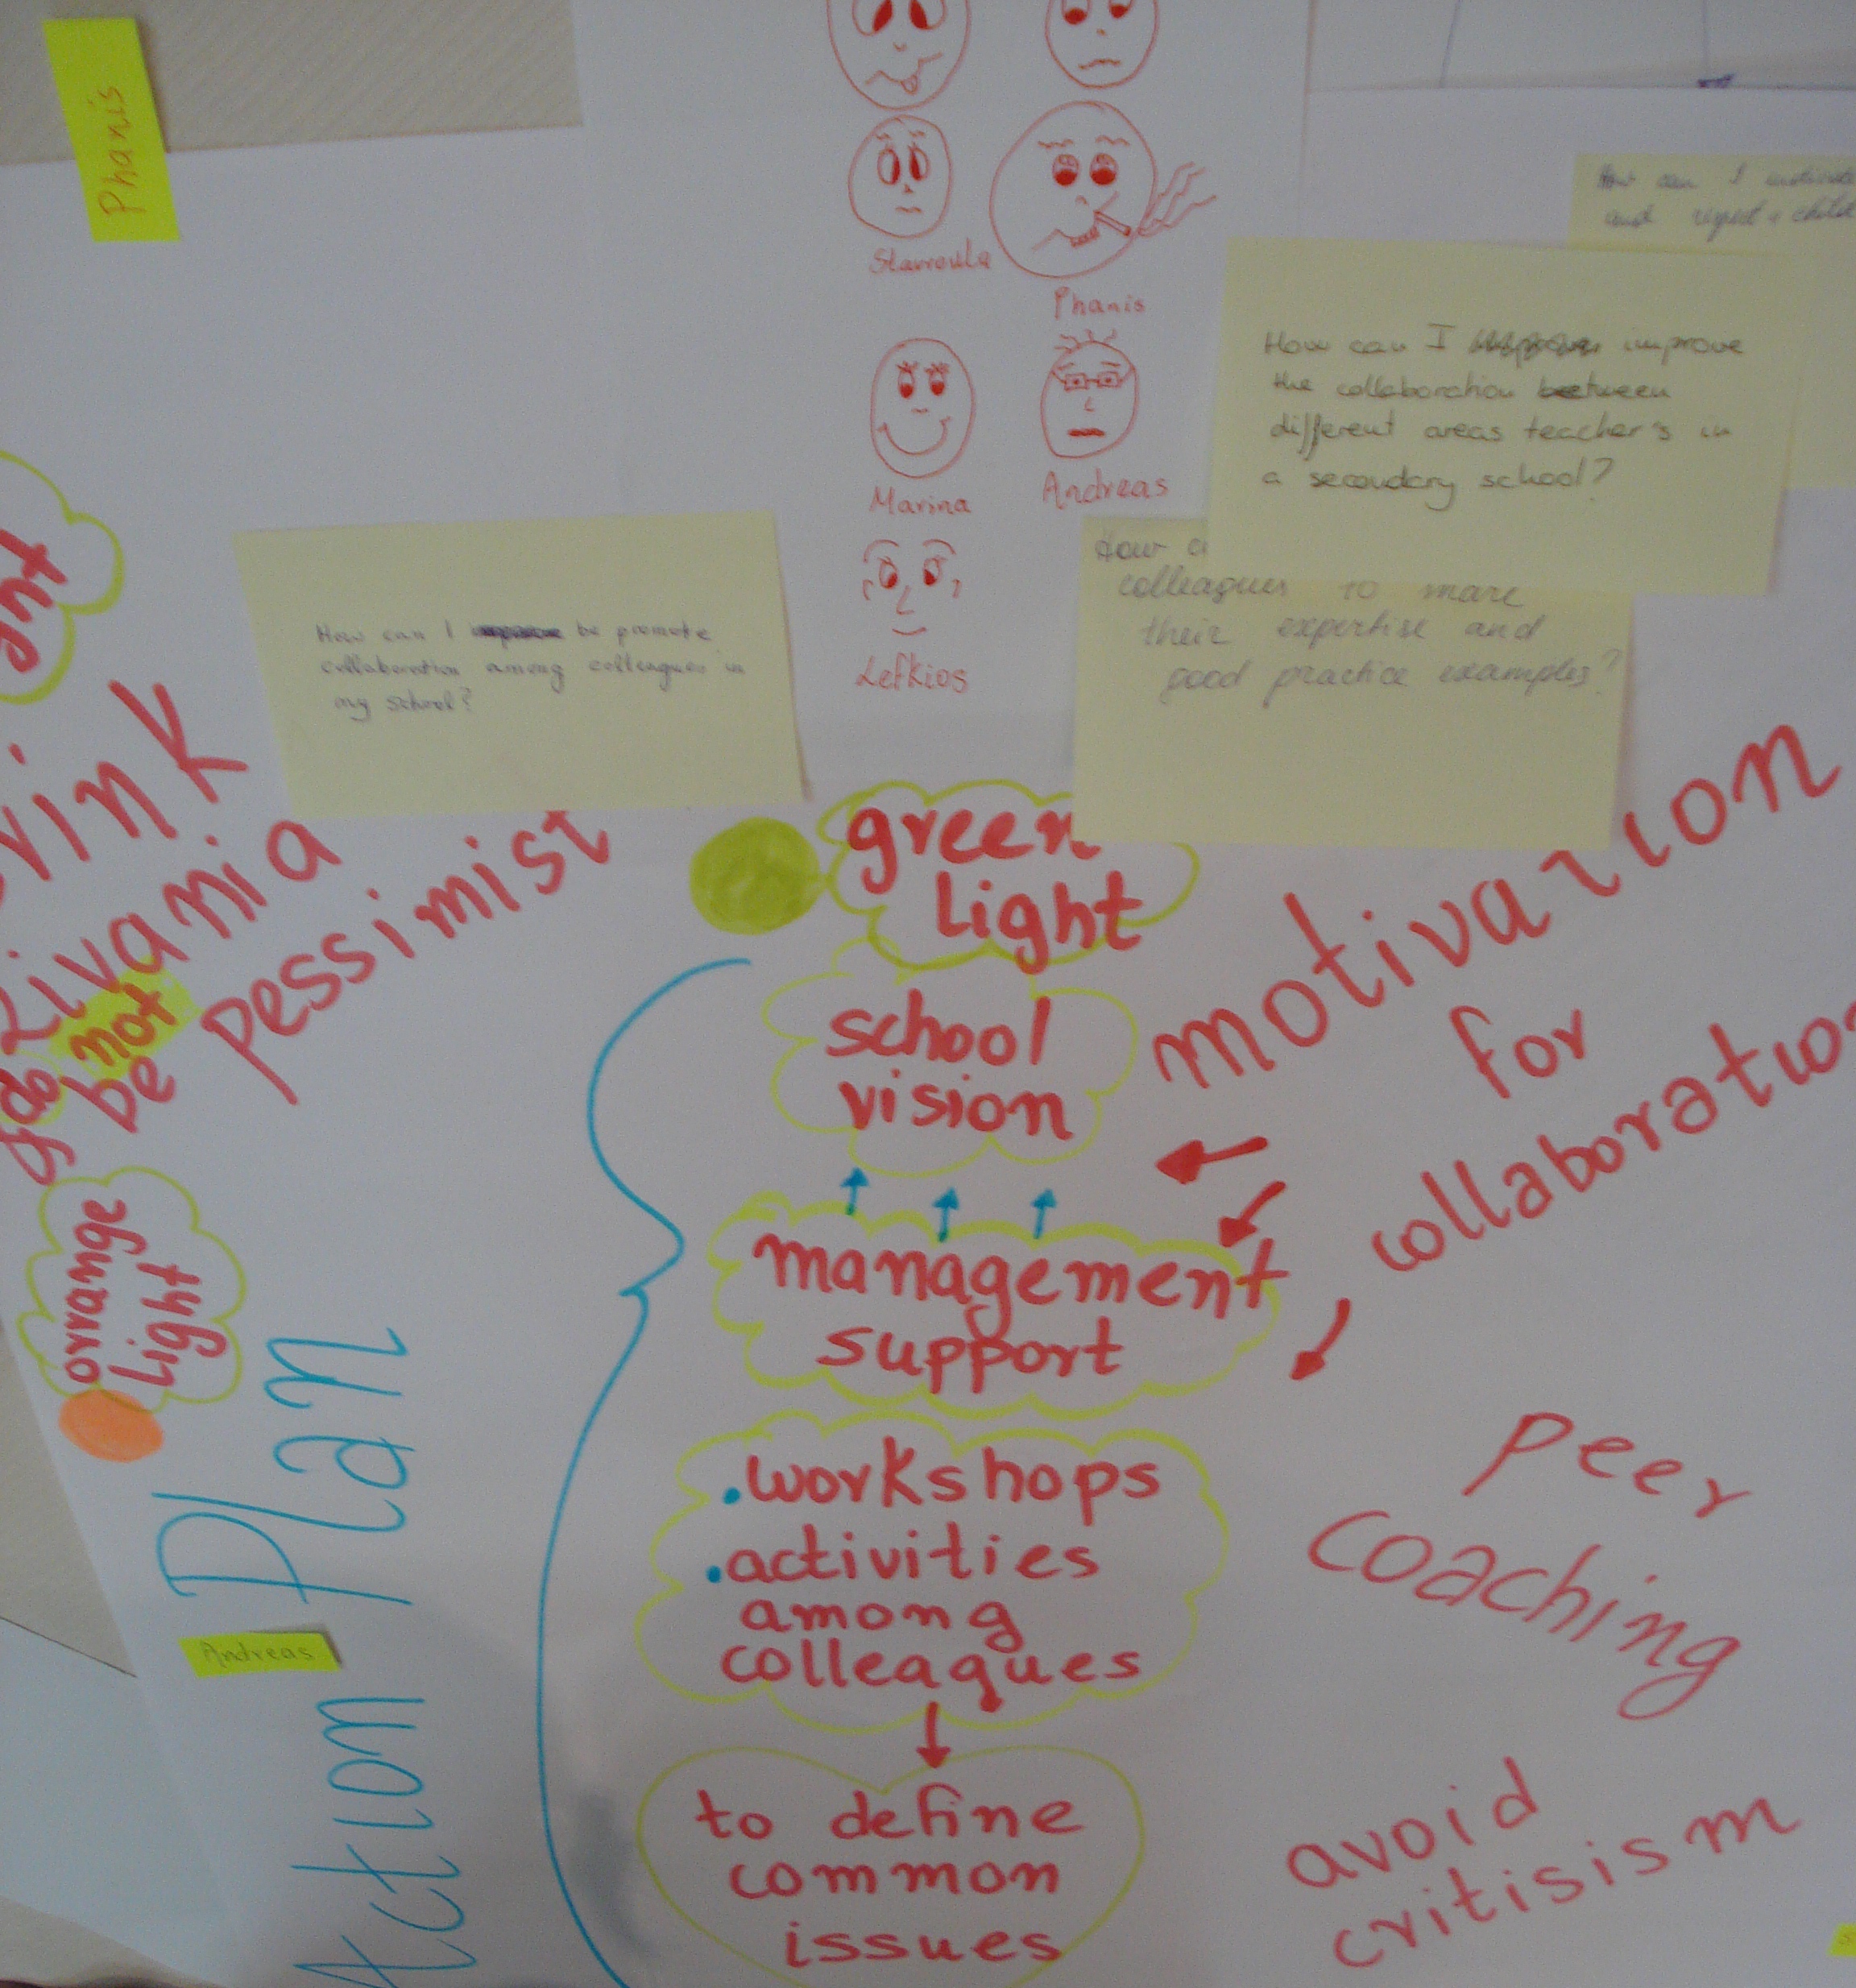 Phanis
Stavroula
Phanis
Marina
Andreas
Lefkios
How can I
and
How can I improve
the collaboration between
different areas teacher's in
a secoudary school?
How
colleagues to
their expertise and
good practice examples?
How can I be promote
collaboration among colleagues in
my school?
not
be
pessimist
orrange
light
green
light
school
vision
management
support
.workshops
.activities
among
colleagues
to define
common
issues
motivation
for
peer
coaching
avoid
critisism
Action Plan
Andreas